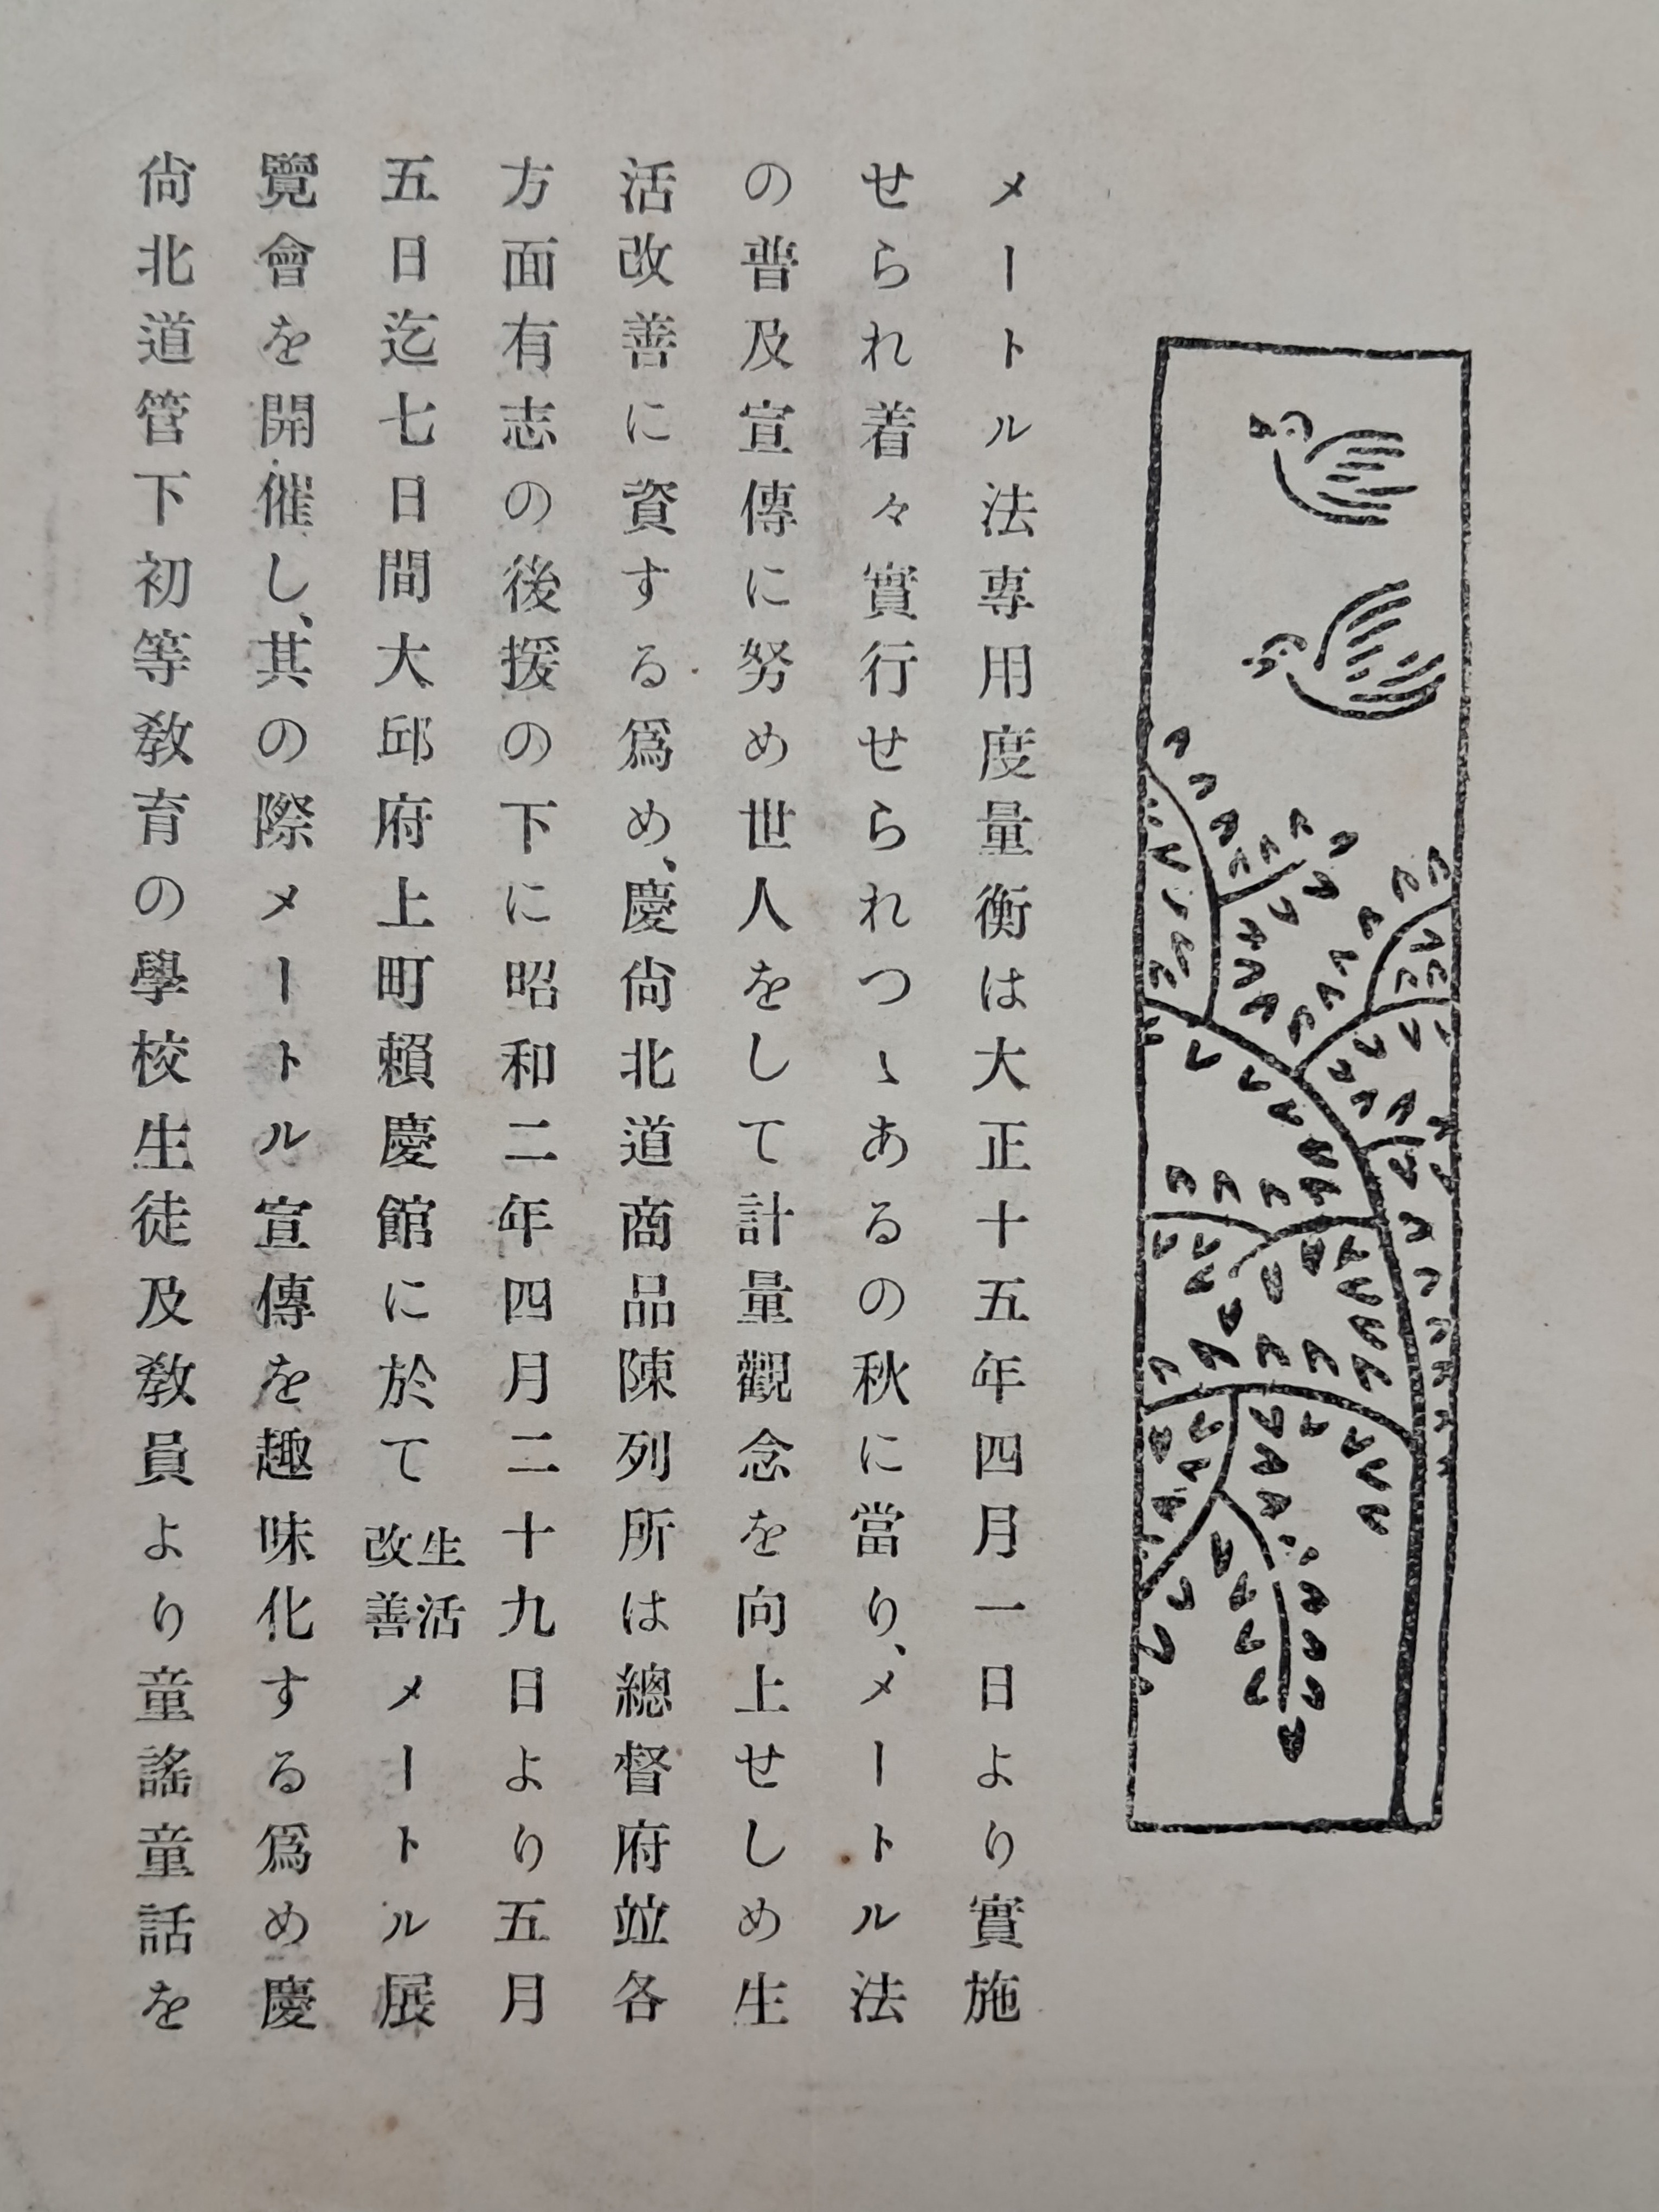 メートル法專用度量衡は大正十五年四月一日より實施
せられ着々實行せられつゝあるの秋に當り、メートル法
の普及宣傳に努め世人をして計量觀念を向上せしめ生
活改善に資する爲め、慶尙北道商品陳列所は總督府竝各
方面有志の後援の下に昭和二年四月二十九日より五月
五日迄七日間大邱府上町賴慶館に於て生活改善メートル展
覽會を開催し、其の際メートル宣傳を趣味化する爲め慶
尙北道管下初等敎育の學校生徒及敎員より童謠童話を